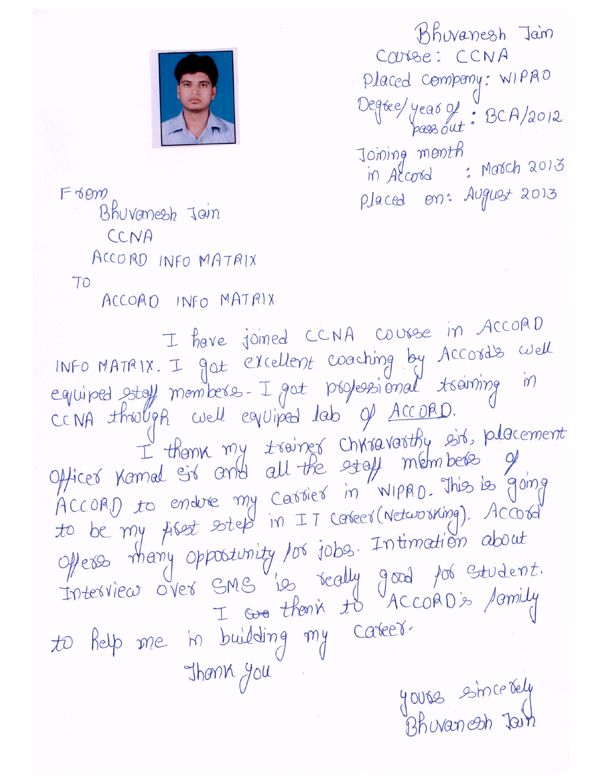 Bhuvanesh Jain
Course: CCNA
Placed Company: WIPRO
Degree/year of pass out: BCA/2012
Joining month in Accord : March 2013
Placed on: August 2013
From
Bhuvanesh Jain
CCNA
ACCORD INFO MATRIX
TO
ACCORD INFO MATRIX
I have joined CCNA course in ACCORD
INFO MATRIX. I got excellent coaching by Accord's well
equiped staff members. I got professional training in
CCNA through well equiped lab of ACCORD.
I thank my trainer Chkravarthy sir, placement
officer Kamal sir and all the staff members of
ACCORD to endure my Carrier in WIPRO. This is going
to be my first step in IT career (Networking). Accord
offers many opportunity for jobs. Intimation about
Interview over SMS is really good for student.
I thank to ACCORD's family
to help me in building my career.
Thank you
yours sincerely
Bhuvanesh Jain